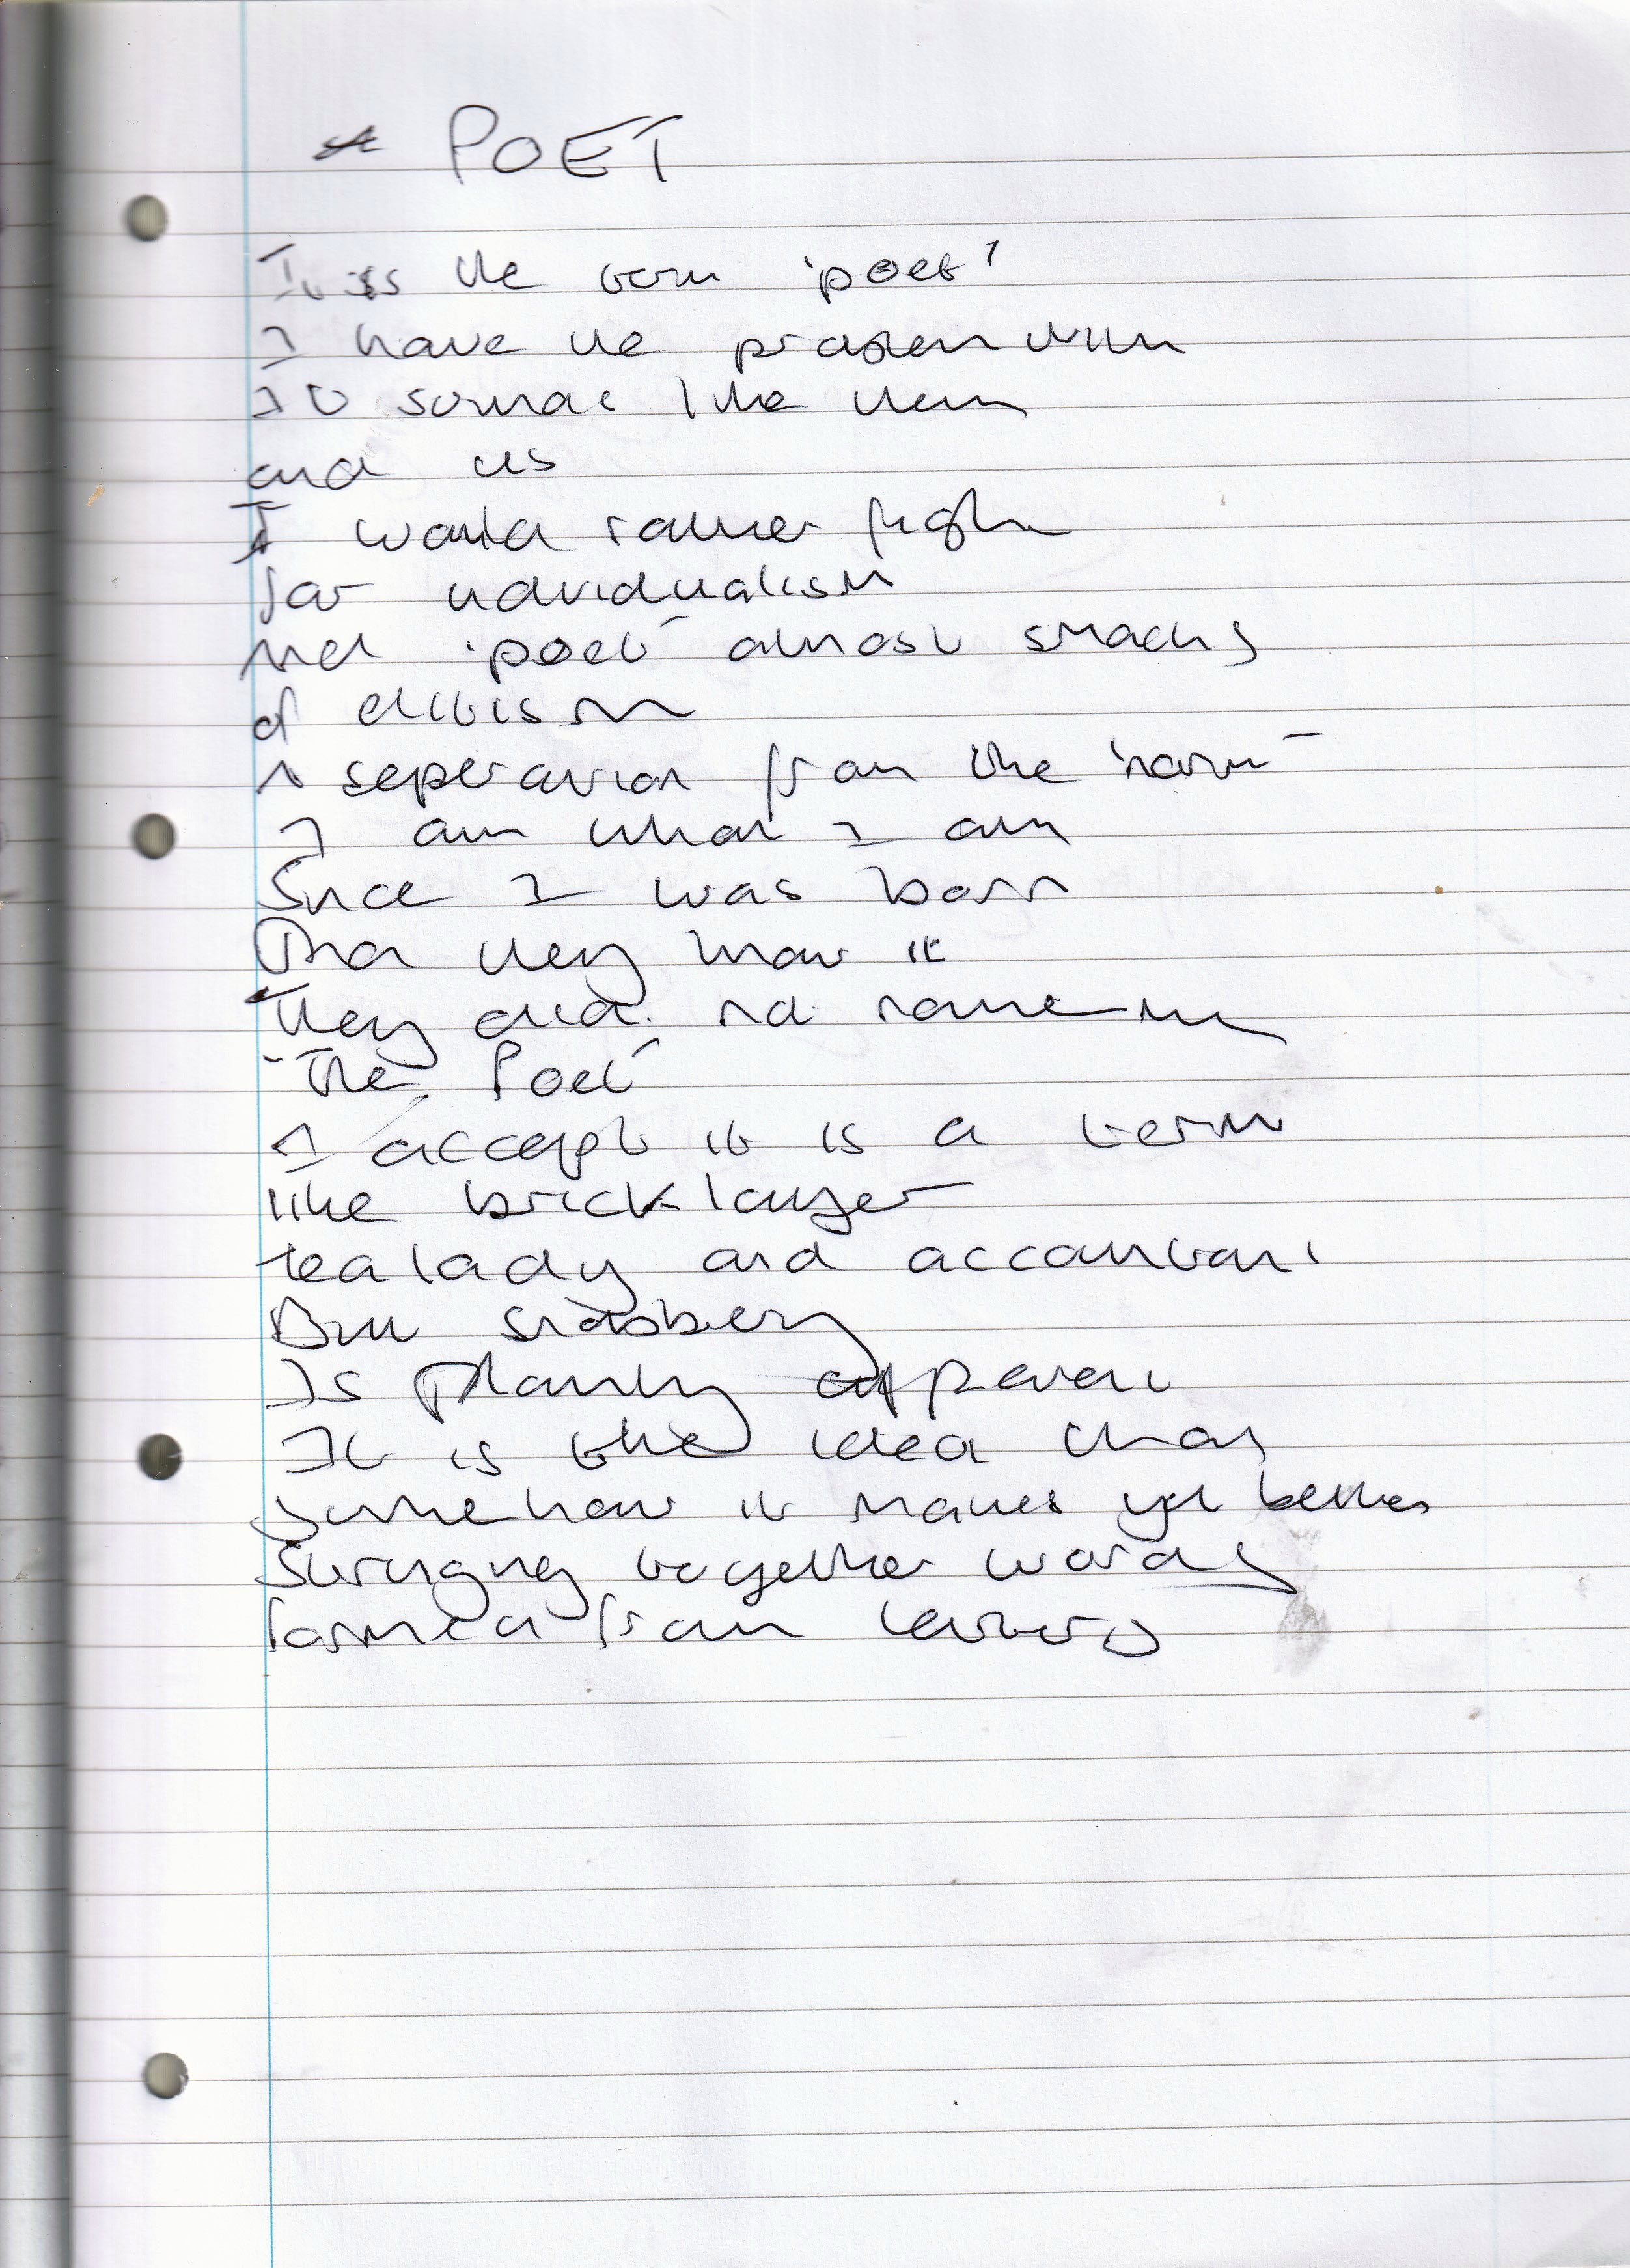 A POET
It is the term 'poet'
I have the problem with
It sounds like them
and us
I would rather fight
for individualism
and 'poet' almost smacks
of elitism
A seperation from the 'norm'
I am what I am
Since I was born
That they know it
They did not name me
'The Poet'
I accept it is a term
like bricklayer
tea lady and accountant
But snobbery
Is plainly apparent
It is the idea that
somehow it makes you better
Stringing together words
formed from letters